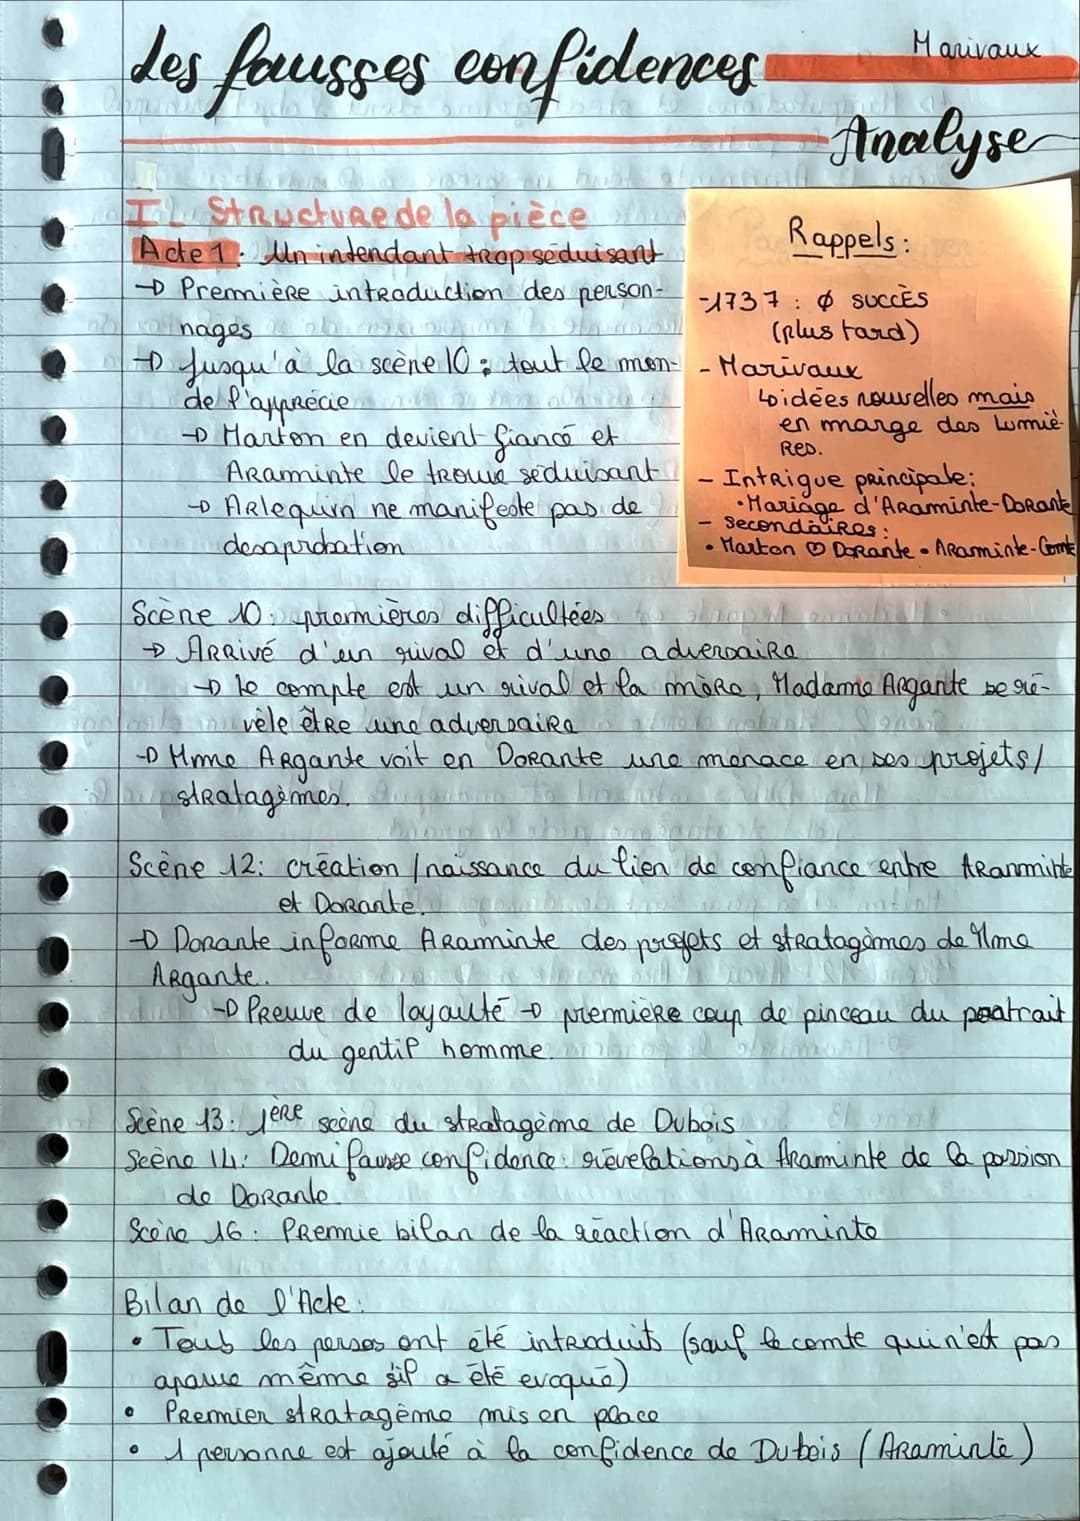 Les fausses confidences
Marivaux
Analyse
I - Structure de la pièce
Acte 1 : Un intendant trop séduisant
→ Première introduction des person-
nages
→ Jusqu'à la scène 10 : tout le mon-
de l'apprécie
→ Marton en devient fiancé et
Araminte le trouve séduisant
→ Arlequin ne manifeste pas de
desaprobation
Rappels :
- 1737 : Ø succès
(plus tard)
- Marivaux
↳ idées nouvelles mais
en marge des Lumiè-
res.
- Intrigue principale :
• Mariage d'Araminte-Dorante
- secondaires :
• Marton ♡ Dorante • Araminte-Comte
Scène 10 : premières difficultées
→ Arrivé d'un rival et d'une adversaire
→ Le compte est un rival et la mère, Madame Argante se ré-
vèle être une adversaire
→ Mme Argante voit en Dorante une menace en ses projets/
stratagèmes.
Scène 12 : création/naissance du lien de confiance entre Aranminte
et Dorante.
→ Dorante informe Araminte des projets et stratagèmes de Mme
Argante.
→ Preuve de loyauté → première coup de pinceau du portrait
du gentil homme.
Scène 13 : 1ère scène du stratagème de Dubois
Scène 14 : Demi fausse confidence : révelations à Araminte de la passion
de Dorante
Scène 16 : Premie bilan de la réaction d'Araminte
Bilan de l'Acte :
• Tous les persos ont été introduits (sauf le comte qui n'est pas
aparue même s'il a été evoqué)
• Premier stratagème mis en place
• 1 personne est ajouté à la confidence de Dubois (Araminte)